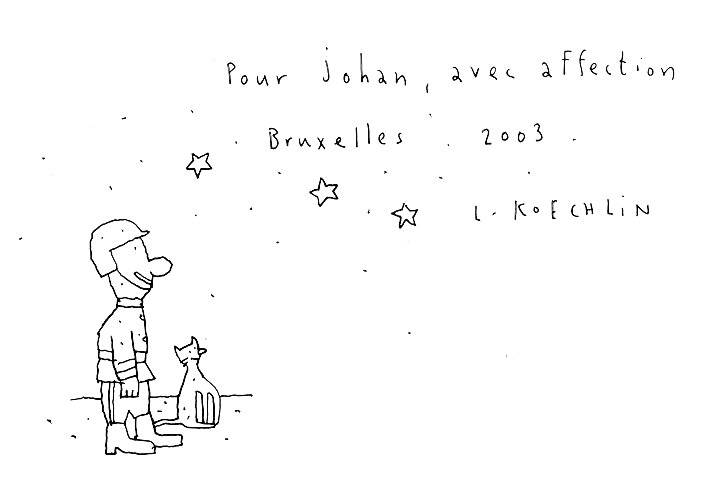 Pour johan, avec affection
Bruxelles. 2003.
L. KOECHLIN